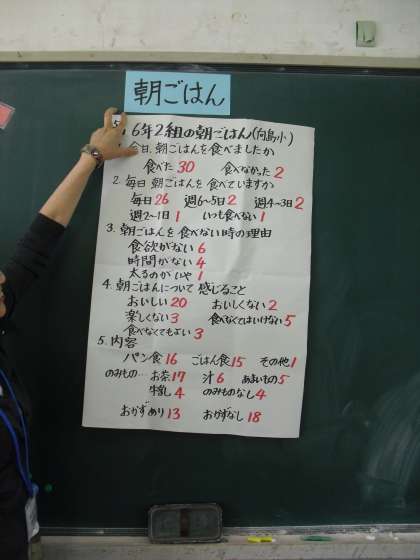 朝ごはん
6年2組の朝ごはん(向島小)
今日、朝ごはんを食べましたか
食べた 30 食べなかった 2
2. 毎日 朝ごはんを食べていますか
毎日 26 週6~5日 2 週4~3日 2
週2~1日 1 いつも食べない 1
3. 朝ごはんを食べない時の理由
食欲がない 6
時間がない 4
太るのがいや 1
4. 朝ごはんについて感じること
おいしい 20 おいしくない 2
楽しくない 3 食べなくてはいけない 5
食べなくてもよい 3
5. 内容
パン食 16 ごはん食 15 その他 1
のみもの… お茶 17 汁 6 あまいもの 5
牛乳 4 のみものなし 4
おかずあり 13 おかずなし 18